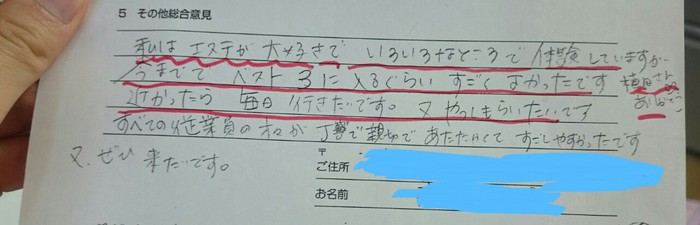 5 その他総合意見
私は エステが 大好きで いろいろなところで 体験していますが
今までで ベスト3に 入るぐらい すごく よかったです
近かったら 毎日 行きたいです。又 やってもらいたいです
植田さん
すべての従業員の 方が 丁寧で 親切で あたたかくて すごしやすかったです
又、ぜひ 来たいです。
〒
ご住所
お名前